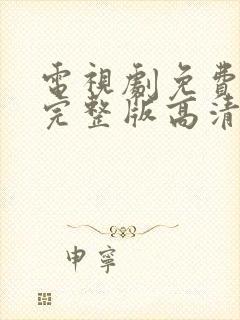 電視劇免費
完整版高清
申寧